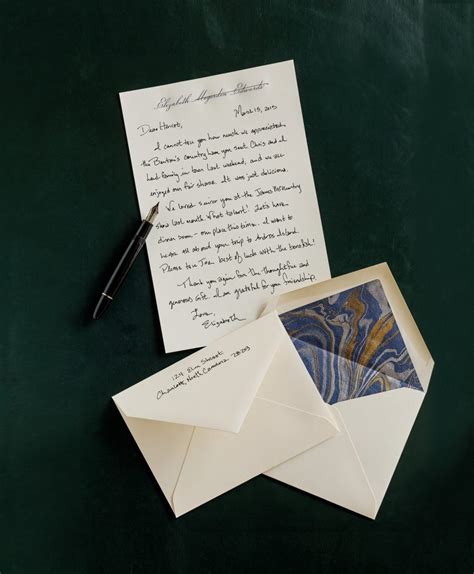 Elizabeth Mayorden Edwards
March 15, 2013
Dear Harriet,
I cannot tell you how much we appreciated
the Benton's country ham you sent. Chris and I
had family in town last weekend, and we all
enjoyed our fair share. It was just delicious.
We loved seeing you at the James McMurtry
show last month. What talent! Let's have
dinner soon – our place this time. I want to
hear all about your trip to Andros Island.
Please tell Jim best of luck with the
Thank you again for the thoughtful and
generous gift. I am grateful for your friendship.
Love,
Elizabeth
1214 Elm Street
Charlotte, North Carolina 28203